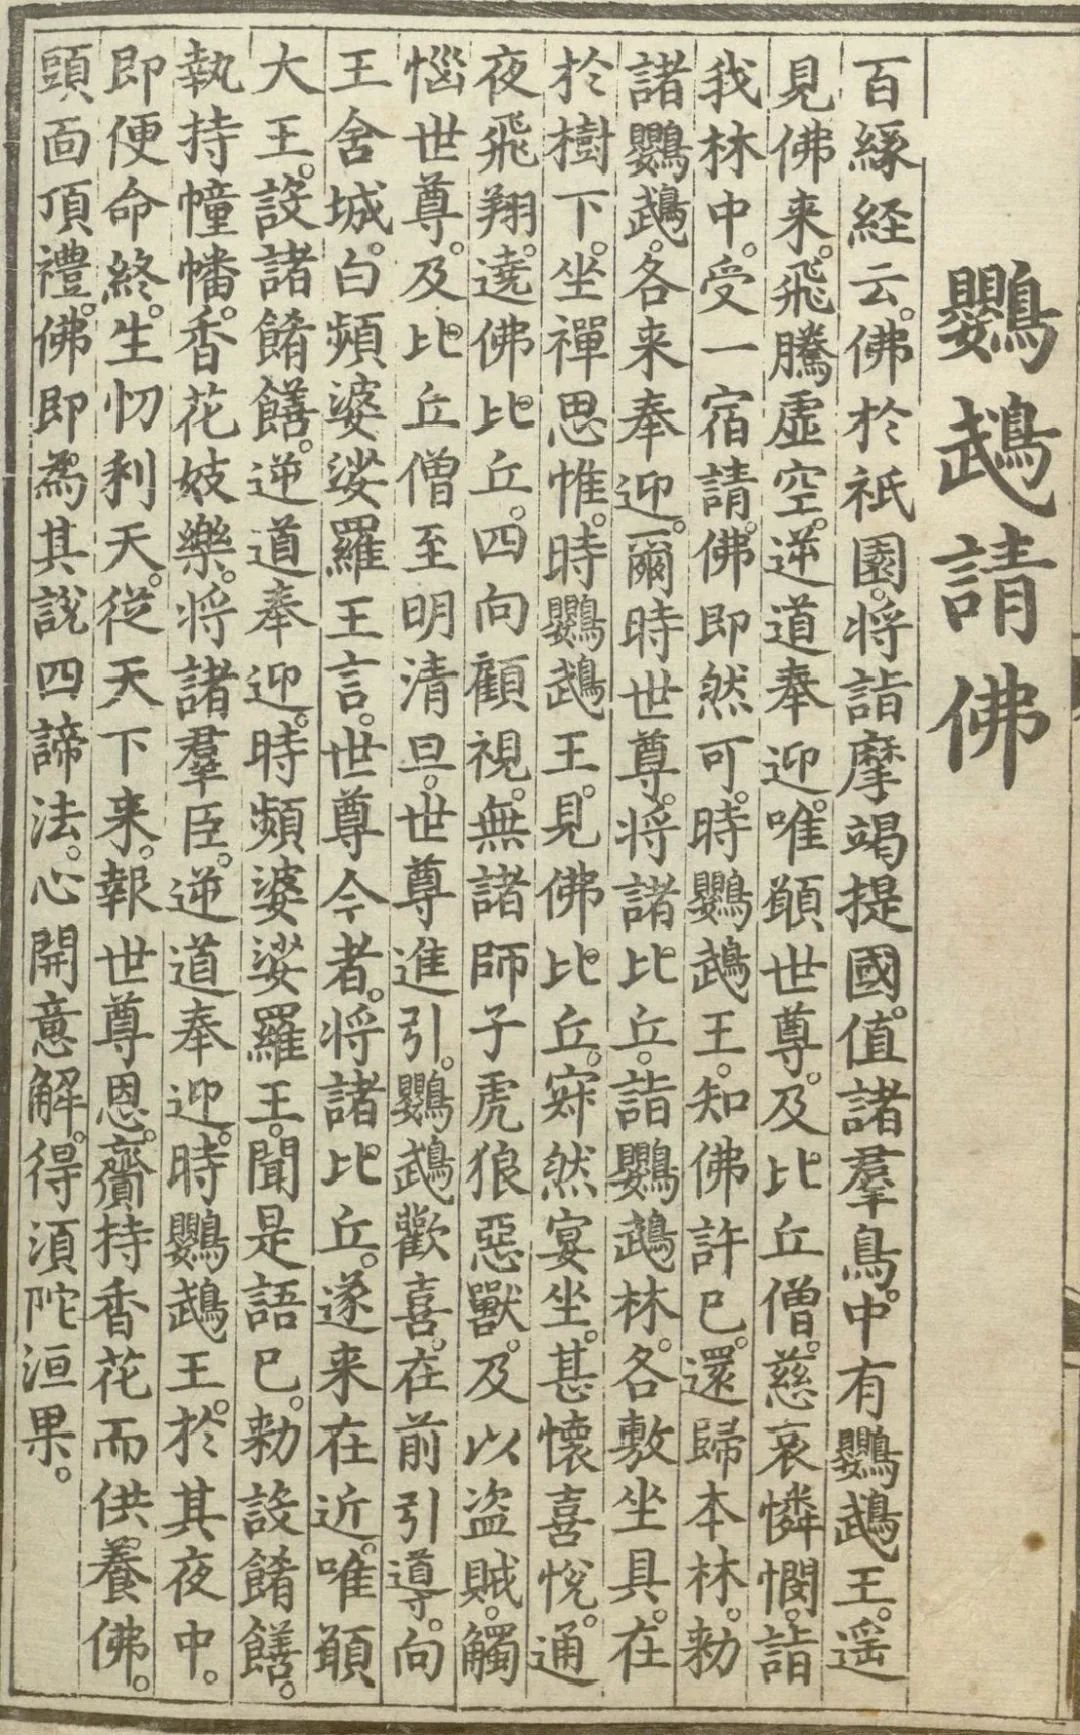 鸚鵡請佛
百緣経云。佛於祇園。将詣摩竭提國。值諸羣鳥。中有鸚鵡王。遥
見佛来。飛騰虛空。逆道奉迎。唯願世尊。及比丘僧。慈哀憐憫。詣
我林中。受一宿請。佛即然可。時鸚鵡王。知佛許已。還歸本林。勑
諸鸚鵡。各来奉迎。爾時世尊。将諸比丘。詣鸚鵡林。各敷坐具。在
於樹下。坐禪思惟。時鸚鵡王。見佛比丘。寂然宴坐。甚懷喜悅。通
夜飛翔。遶佛比丘。四向顧視。無諸師子虎狼惡獸。及以盗賊。觸
惱世尊。及比丘僧至明清旦。世尊進引。鸚鵡歡喜。在前引導。向
王舍城。白頻婆娑羅王言。世尊今者。将諸比丘。遂来在近。唯願
大王。設諸餚饍。逆道奉迎。時頻婆娑羅王。聞是語已。勑設餚饍。
執持幢幡。香花妓樂。将諸羣臣。逆道奉迎。時鸚鵡王。於其夜中。
即便命終。生忉利天。從天下来。報世尊恩。齎持香花而供養佛。
頭面頂禮。佛即為其說四諦法。心開意解。得湏陀洹果。